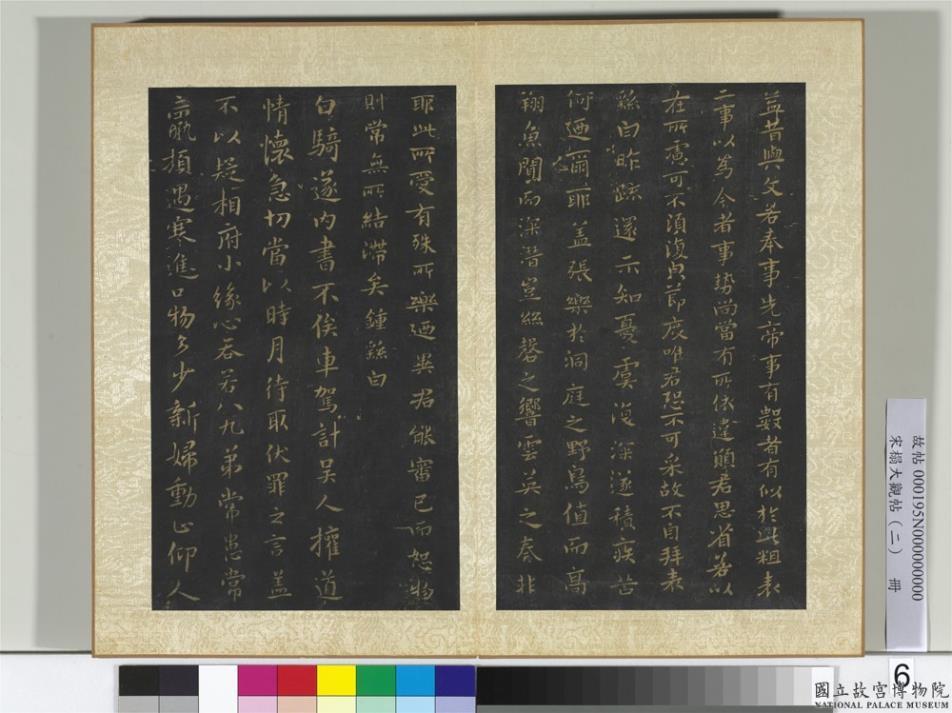 益昔與文若奉事先帝事有數者有似於此粗表
二事以為今者事勢尚當有所依違願君思省若以
在所慮可不須復與節度唯君恐不可采故不自拜表
繇白昨疏還示知憂虞復深遂積疾苦
何迺爾耶蓋張樂於洞庭之野鳥值而高
翔魚聞而深潛豈絲磬之響雲英之奏非
耶此所受有殊所樂迺異君能審己而恕物
則常無所結滯矣鍾繇白
白騎遂內書不俟車駕計吳人權道
情懷急切當以時月待取伏罪之言蓋
不以疑相府小緣心吞若八九弟常患常
羸頓遇寒進口物多少新婦動止仰人
故帖 000195N000000000
宋搨大觀帖(二) 冊
6
國立故宮博物院
NATIONAL PALACE MUSEUM